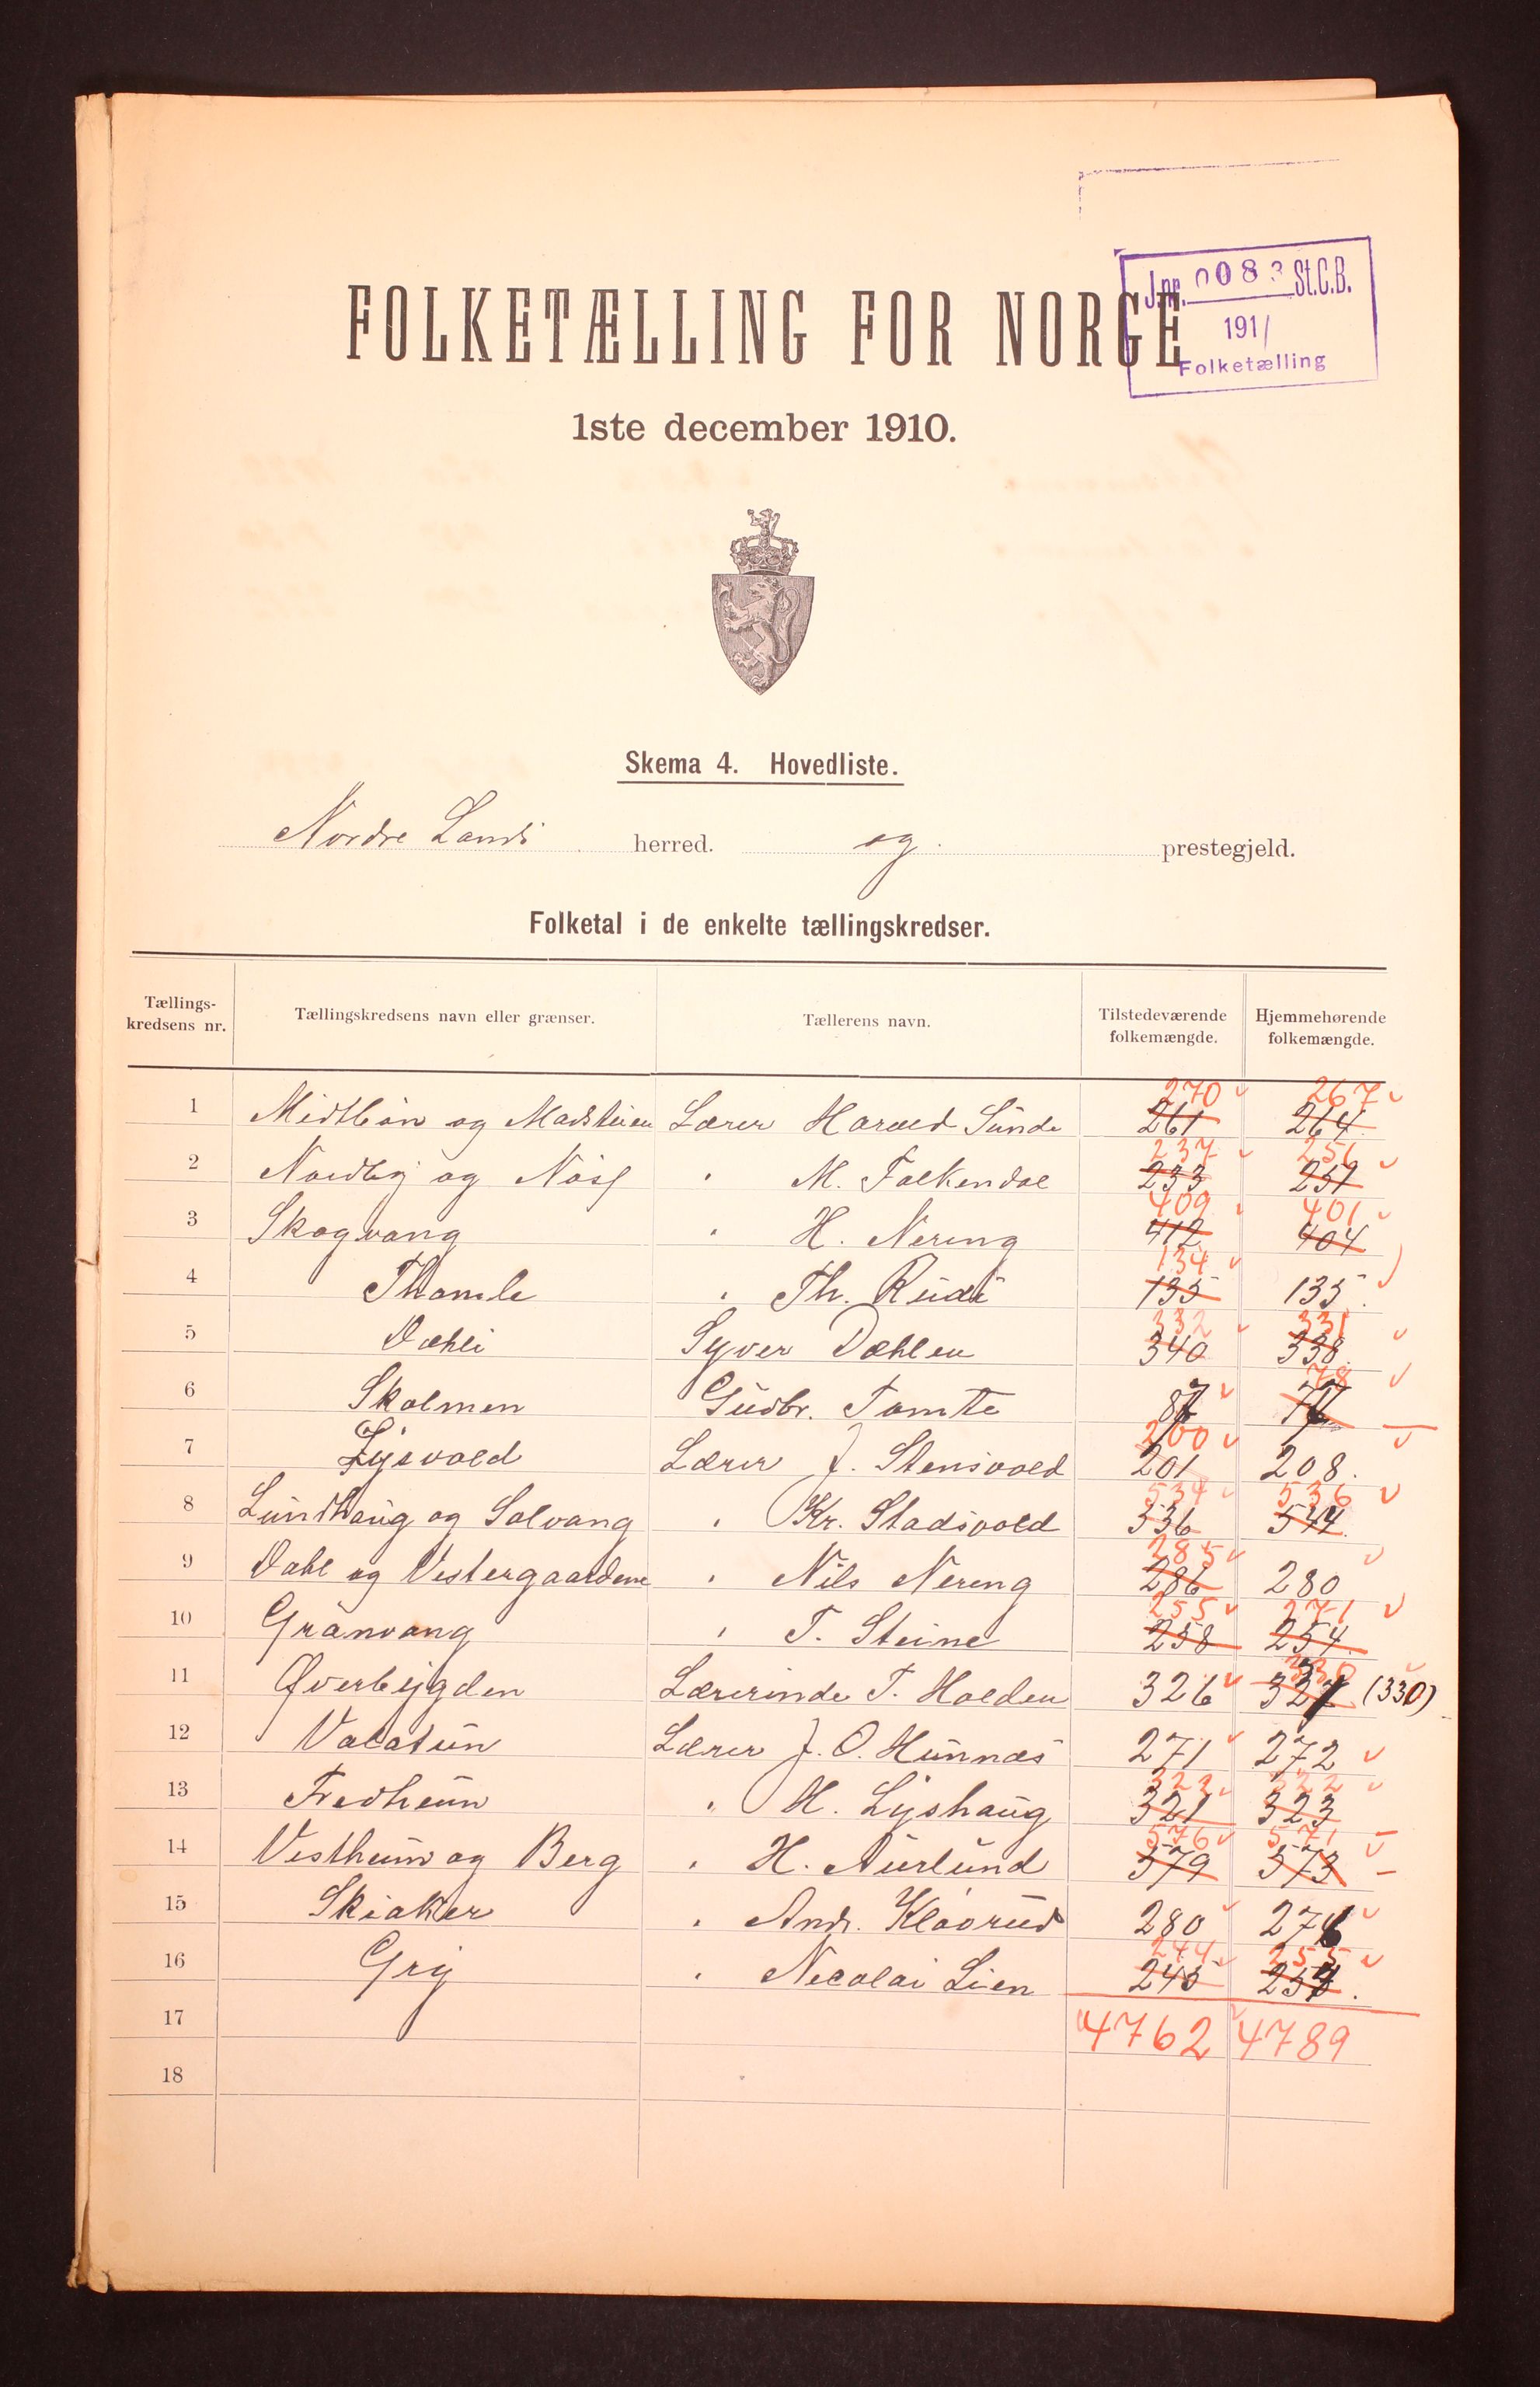 J.nr. 0083 St.C.B.
191/
Folketælling
FOLKETÆLLING FOR NORGE
1ste december 1910.
Skema 4. Hovedliste.
Nordre Lands herred. og prestegjeld.
Folketal i de enkelte tællingskredser.
Tællings-kredsens nr. Tællingskredsens navn eller grænser. Tællerens navn. Tilstedeværende folkemængde. Hjemmehørende folkemængde.
270 267
1 Midtbøn og Madsteien Lærer Harald Sunde 261 264
237 251
2 Nordby og Nøss " M. Falkendal 233 251
409 401
3 Skogvang " H. Nering 412 404
134
4 Thomle " Th. Rudi 135 135.
332 331
5 Dæhli Syver Dæhlen 340 338
78
6 Skolmen Gudbr. Tomte 87 77
200
7 Lysvold Lærer J. Stensvold 201 208.
534 536
8 Lundhaug og Solvang " Kr. Stadsvold 536 544
285
9 Dahl og Vestergaardene " Nils Nereng 286 280
255 271
10 Grønvang " T. Steine 258 254
330
11 Øverbygden Lærerinde T. Holden 326 327 (330)
12 Valatun Lærer J. O. Hunnæs 271 272
323 322
13 Fredheim " H. Lyshaug 321 323
576 571
14 Vestheim og Berg " H. Aurlund 579 573
15 Skiaker " Andr. Kløvrud 280 276
244 255
16 Gry " Necolai Lien 245 258.
17 4762 4789
18